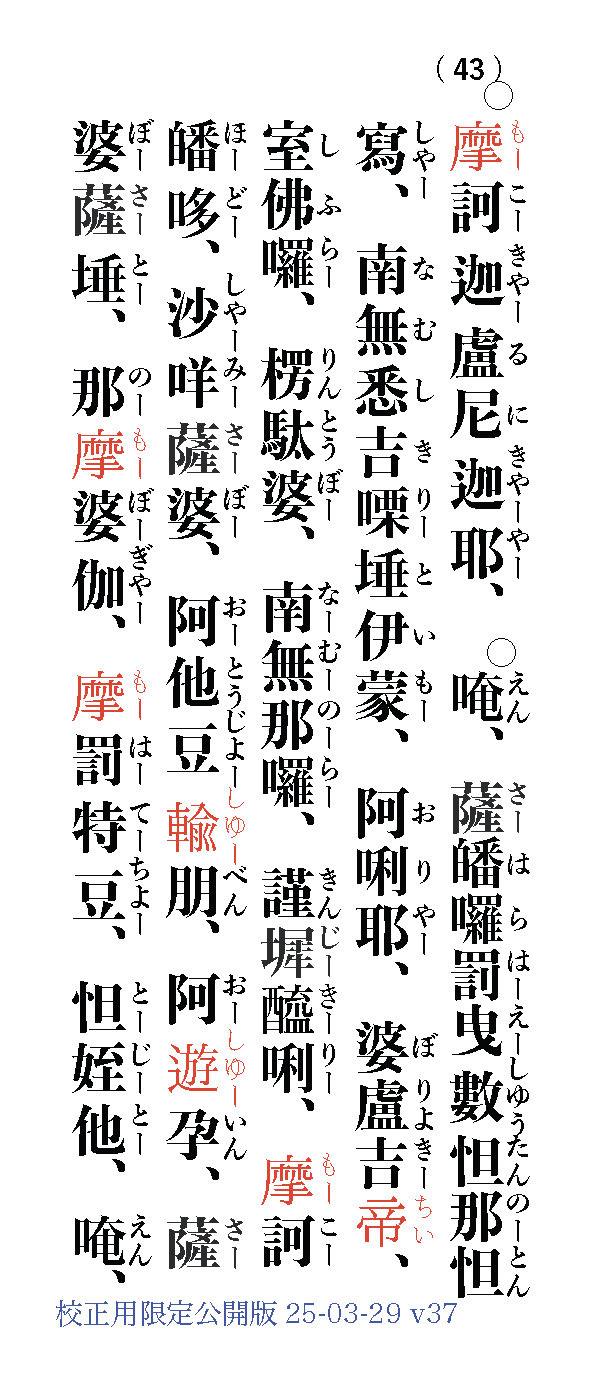 （43）
○摩訶迦盧尼迦耶、○唵、薩皤囉罰曳數怛那怛
もーこーきやーるにきやーやー えん さーはらはーえーしゆうたんのーとん
寫、南無悉吉㗚埵伊蒙、阿唎耶、婆盧吉帝、
しやー なむしきりーといもー おりやー ぼりよきーちい
室佛囉、楞駄婆、南無那囉、謹墀醯唎、摩訶
しふらー りんとうぼー なーむーのーらー きんじーきーりー もーこー
皤哆、沙咩薩婆、阿他豆輸朋、阿遊孕、薩
ほーどー しやーみーさーぼー おーとうじよーしゆーべん おーしゆーいん さー
婆薩埵、那摩婆伽、摩罰特豆、怛姪他、唵、
ぼーさーとー のーもーぼーぎやー もーはーてーちよー とーじーとー えん
校正用限定公開版 25-03-29 v37